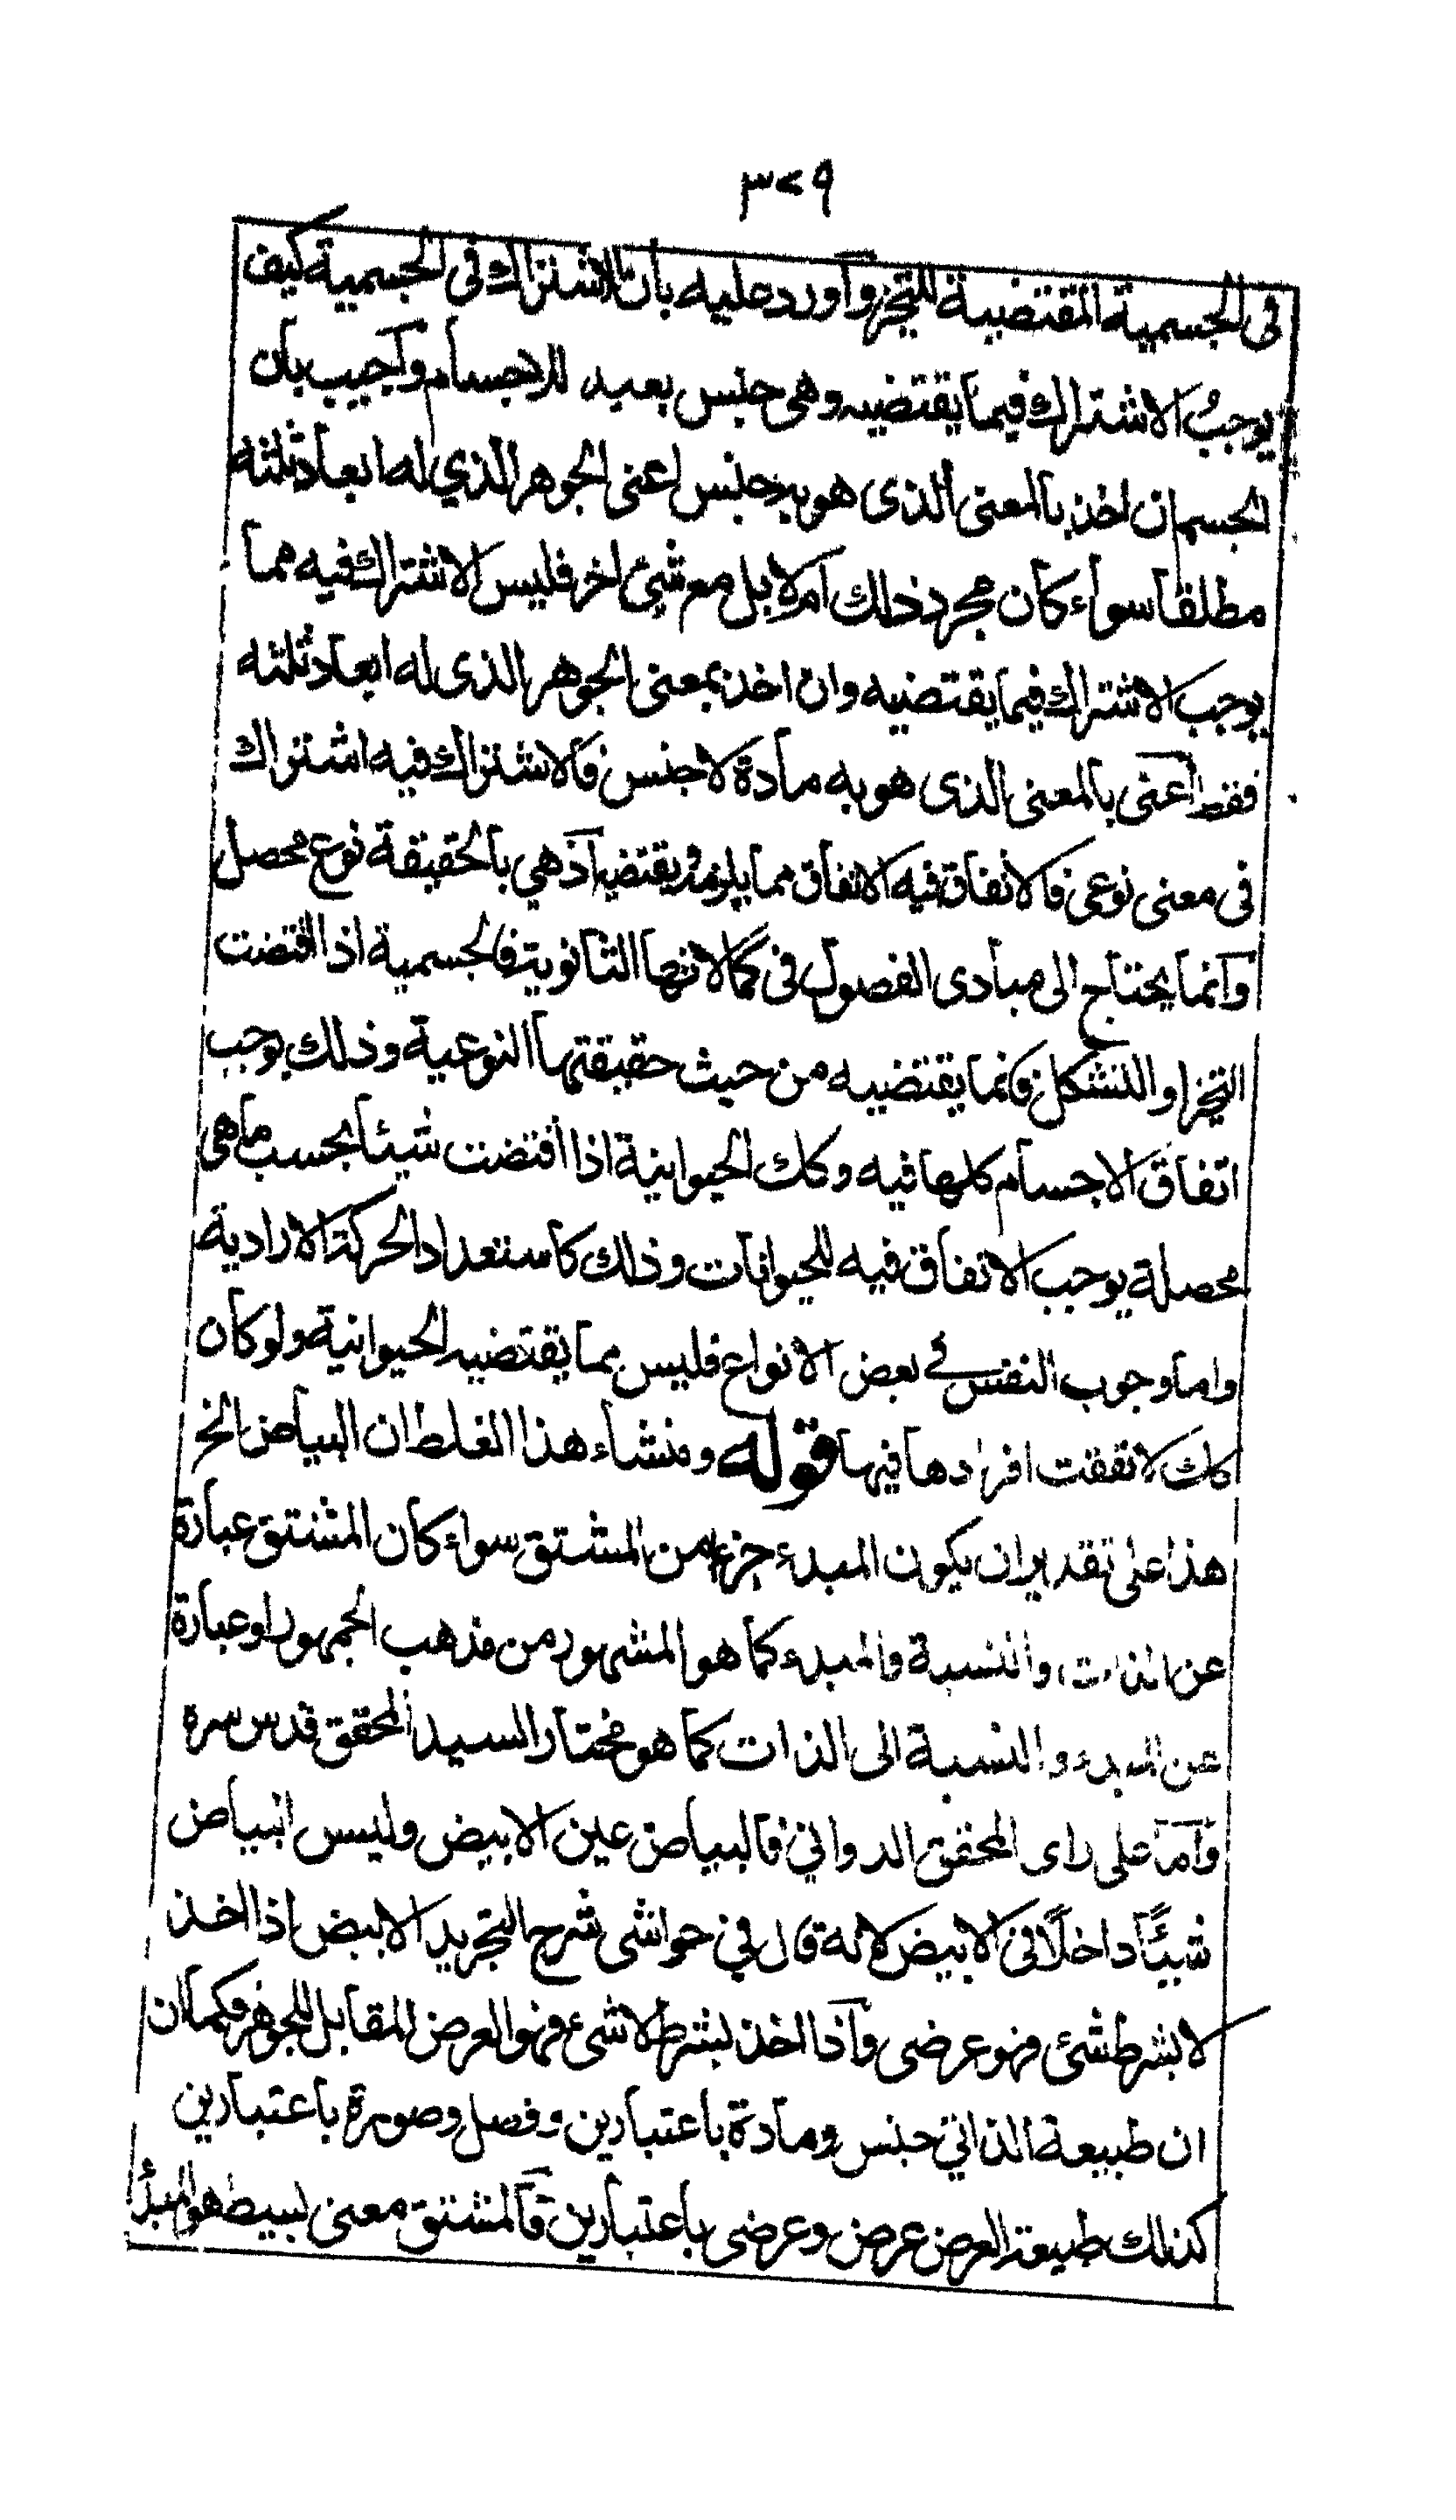 ٣٢٩
فى الجسمية المقتضية للتحيز وأورد عليه بان الاشتراك فى الجسمية كيف
يوجب الاشتراك فيما يقتضيه وهى جنس بعيد للاجسام وأجيب بان
الجسم ان اخذ بالمعنى الذى هو به جنس اعنى الجوهر الذي له ابعاد ثلثة
مطلقا سواء كان مجرد ذلك ام لا بل مع شئ اخر فليس الاشتراك فيه مما
يوجب الاشتراك فيما يقتضيه وان اخذ بمعنى الجوهر الذى له ابعاد ثلثه
فقط أعنى بالمعنى الذى هو به مادة لا جنس فالاشتراك فيه اشتراك
فى معنى نوعى فالاتفاق فيه الاتفاق مما يلزمه ويقتضيه اذ هي بالحقيقة نوع محصل
وانما يحتاج الى مبادى الفصول فى كمالاتها الثانوية فالجسمية اذا اقتضت
التحيز او التشكل فانما يقتضيه من حيث حقيقتها النوعية وذلك يوجب
اتفاق الاجسام كلها فيه وكك الحيوانية اذا اقتضت شيئا بحسب ماهى
محصلة يوجب الاتفاق فيه للحيوانات وذلك كاستعداد الحركة الارادية
واما وجوب النفس في بعض الانواع فليس مما يقتضيه الحيوانية ولو كان
كك لاتفقت افرادها فيها قوله ومنشاء هذا الغلط ان البياض الخ
هذا على تقدير ان يكون المبدء جزء من المشتق سواء كان المشتق عبارة
عن الذات والنسبة والمبدء كما هو المشهور من مذهب الجمهور او عبارة
عن المبدء والنسبة الى الذات كما هو مختار السيد المحقق قدس سره
وأما على راى المحقق الدواني فالبياض عين الابيض وليس البياض
شيئًا داخلًا فى الابيض لانه قال في حواشى شرح التجريد الابيض اذا اخذ
لا بشرط شئ فهو عرضى وأذا اخذ بشرط لا شئ فهو العرض المقابل للجوهر فكما ان
ان طبيعة الذاتي جنس ومادة باعتبارين وفصل وصورة باعتبارين
كذلك طبيعة العرض عرض وعرضى باعتبارين فالمشتق معنى بسيط هو المبدأ